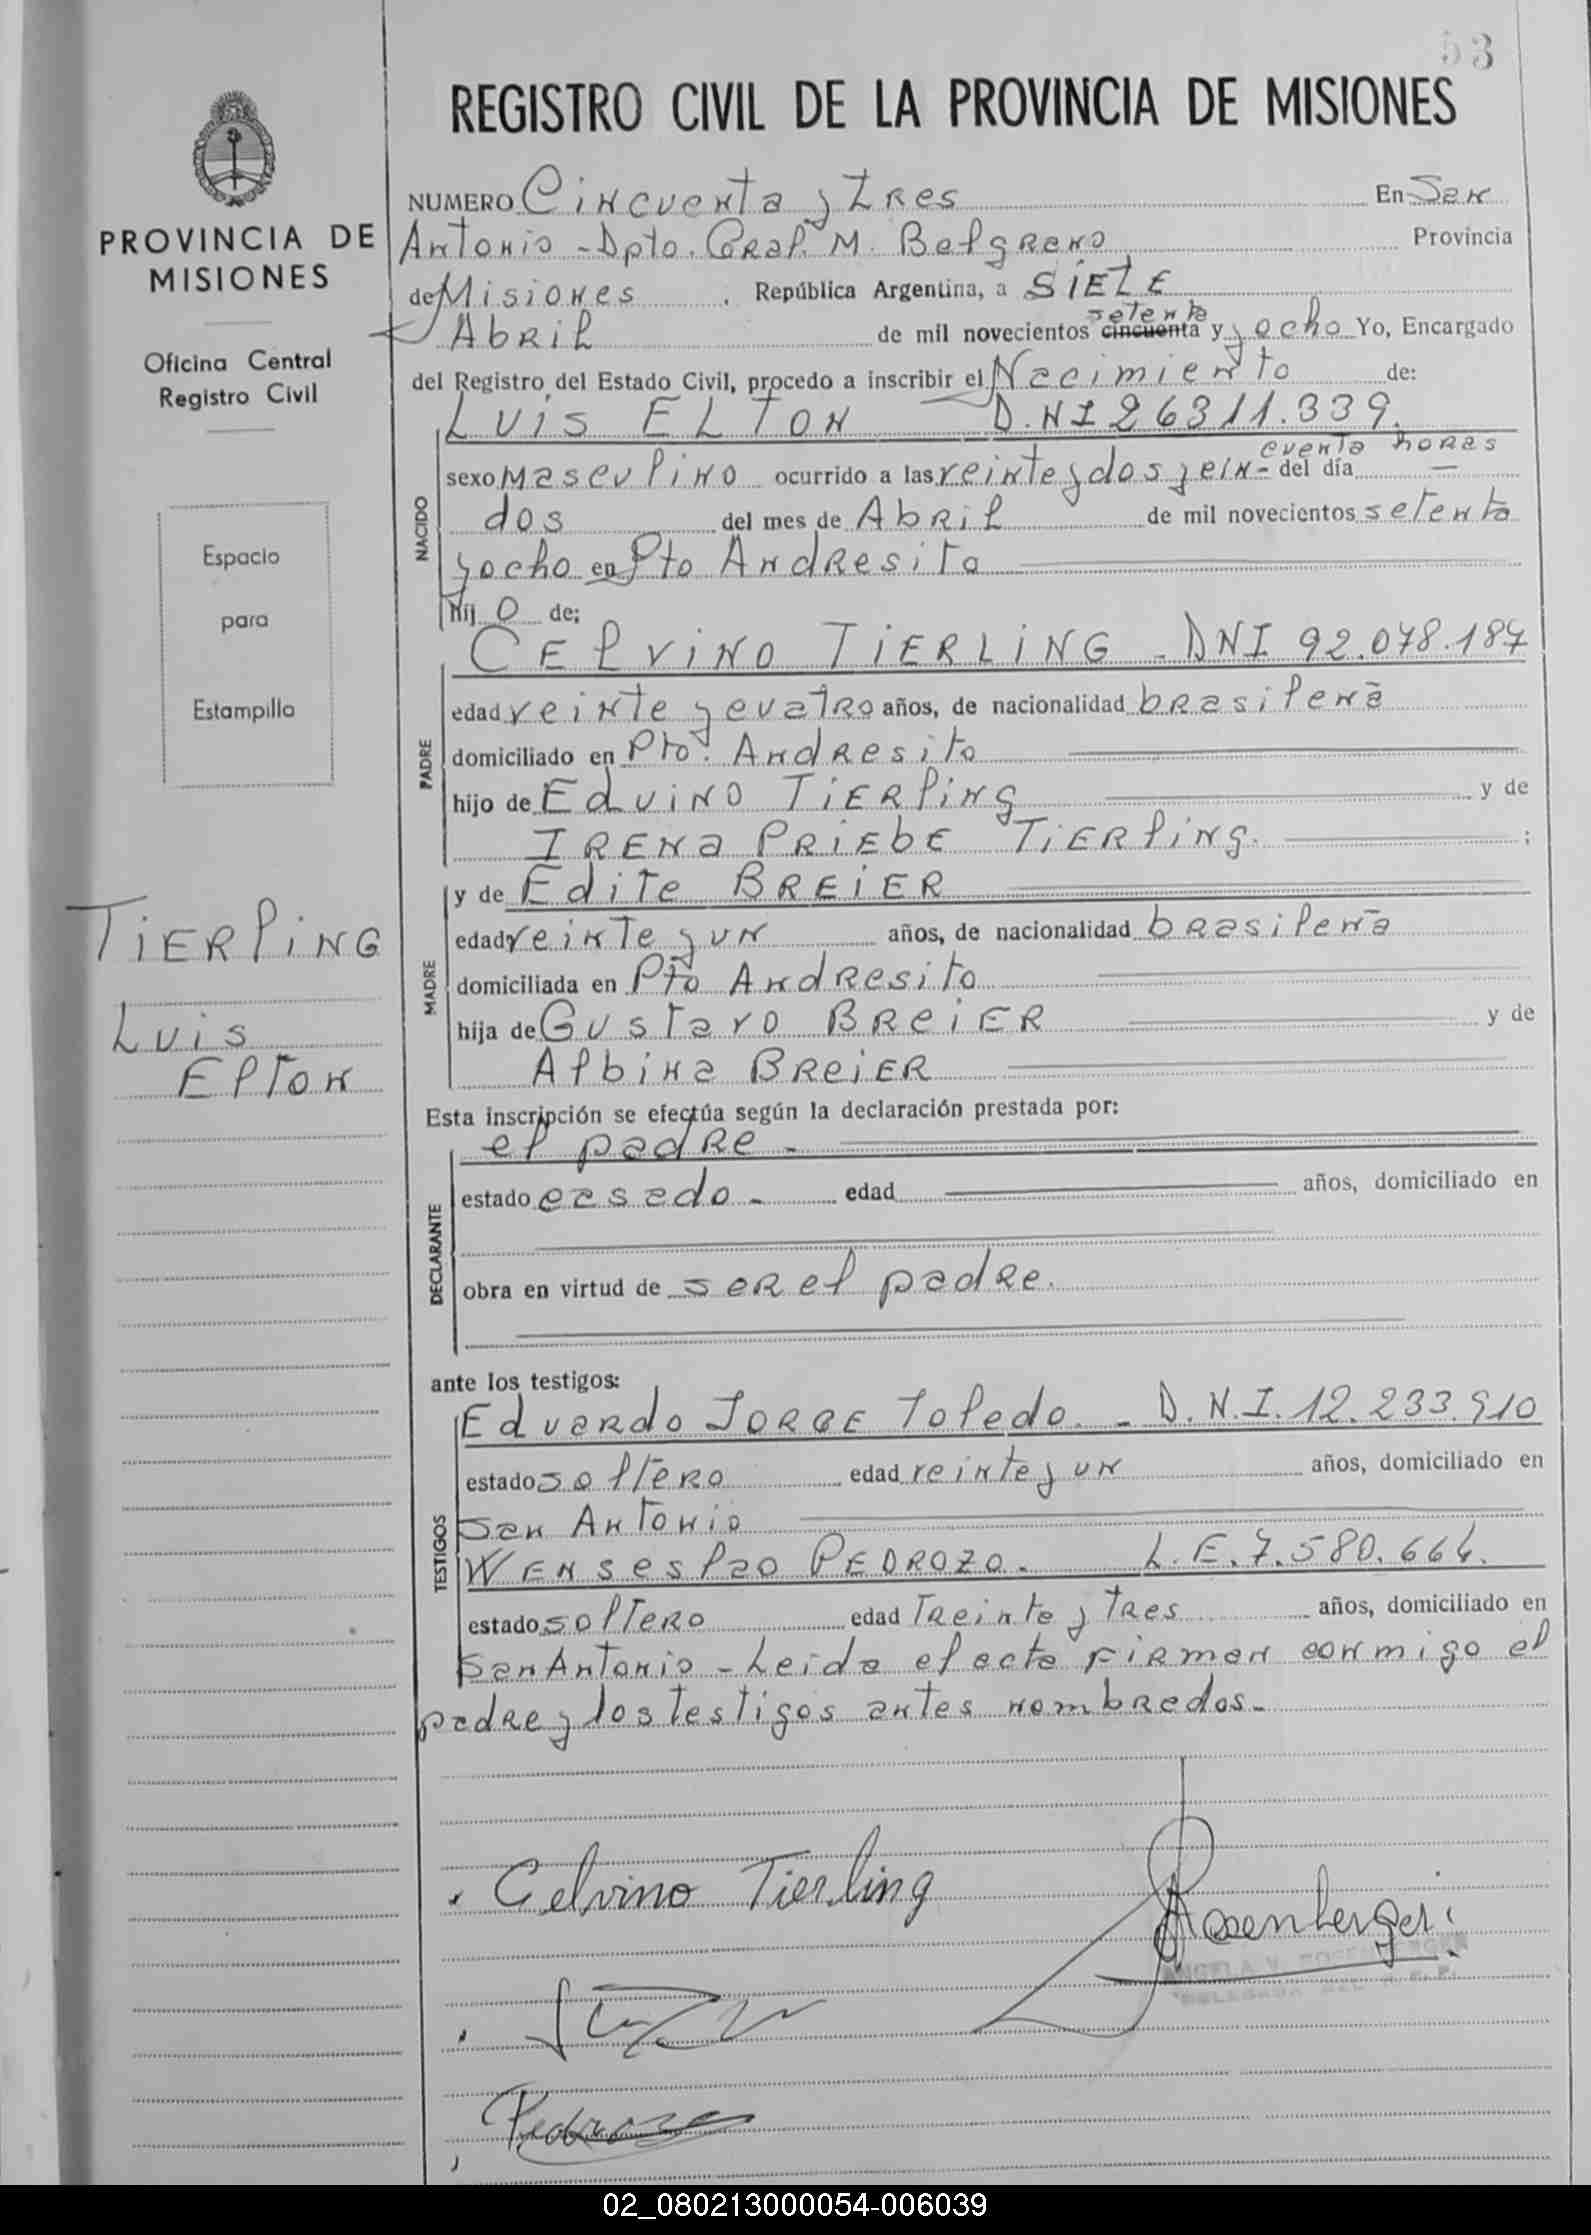 53
REGISTRO CIVIL DE LA PROVINCIA DE MISIONES
PROVINCIA DE
MISIONES
Oficina Central
Registro Civil
Espacio
para
Estampilla
TiERling
Luis
Elton
NUMERO Cincuenta y tres En San
Antonio - Dpto. Gral. M. Belgrano Provincia
de Misiones. República Argentina, a SiETE
setenta
Abril de mil novecientos cincuenta y y ocho Yo, Encargado
del Registro del Estado Civil, procedo a inscribir el Nacimiento de:
Luis ELTON D.NI 26311.339.
cuenta horas
sexo Masculino ocurrido a las veinte y dos y cin- del día —
dos del mes de Abril de mil novecientos setenta
y ocho en Pto Andresito
hij o de:
CElviNO TiERLiNG - DNI 92.078.187
edad veinte y cuatro años, de nacionalidad brasileña
domiciliado en Pto. Andresito
hijo de Eduino Tierling y de
IRENa PRiEbE TiERling. ;
y de Edite BREiER
edad veinte y un años, de nacionalidad brasileña
domiciliada en Pto Andresito
hija de Gustavo BReiER y de
Albina BReiER
Esta inscripción se efectúa según la declaración prestada por:
el padre -
estado casado - edad años, domiciliado en
obra en virtud de ser el padre.
ante los testigos:
Eduardo JORGE Toledo. - D.N.I. 12.233.910
estado soltero edad veinte y un años, domiciliado en
San Antonio
WENseslao PEDROZO. L.E. 7.580.664.
estado soltero edad Treinta y tres años, domiciliado en
San Antonio - Leida el acta firman conmigo el
padre y los testigos antes nombrados.-
NACIDO
PADRE
MADRE
DECLARANTE
TESTIGOS
Celvino Tierling
Rosenberger
ANGELA V. ROSENBERGER
DELEGADA DEL R. E. P.
Pedrozo
02_080213000054-006039